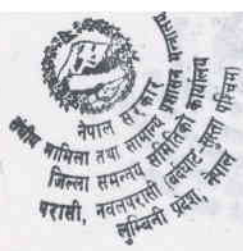 नेपाल सरकार
संघीय मामिला तथा सामान्य प्रशासन मन्त्रालय
जिल्ला समन्वय समितिको कार्यालय
परासी, नवलपरासी (बर्दघाट सुस्ता पश्चिम)
लुम्बिनी प्रदेश, नेपाल